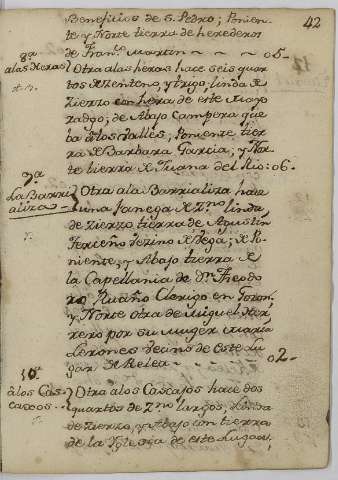 42
Beneficios de S. Pedro; Ponien-
te y Norte tierra de herederos
de Franco. Martin ~ ~ ~ 05.
8ª
a las Heras
Otra a las heras hace seis quar-
tos de zenteno, y trigo, linda de
Zierzo con hera de este Mayo
radgo; de Abajo Campera que
ba a los Valles; Poniente tier
ra de Barbara Garcia; y Nor-
te tierra de Juana del Rio: 06.
9ª
La Barri
aliza
Otra a la Barrializa hace
una fanega de Zno. linda
de Zierzo tierra de Agustin
vezino de Vega; de Po-
niente, y Abajo tierra de
la Capellania de Dn. Theodo
ro Ruaño Clerigo en
y Norte otra de Miguel Her-
rero por su Muger Maria
de este Lu
gar de ~ ~ 02.
10ª
a los Cas-
cacos
Otra a los Cascajos hace dos
quartos de Zno. largos, Linda
de Zierzo, y Abajo con tierra
de la Yglesia de este Lugar,